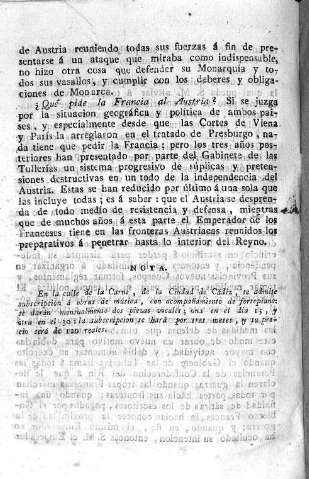 de Austria reuniendo todas sus fuerzas á fin de pre-
sentarse á un ataque que miraba como indispensable,
no hizo otra cosa que defender su Monarquía y to-
dos sus vasallos, y cumplir con los deberes y obliga-
ciones de Monarca.
¿Qué pide la Francia al Austria? Si se juzga
por la situacion geográfica y política de ambos pai-
ses, y especialmente desde que las Cortes de Viena
y París la arreglaron en el tratado de Presburgo, na-
da tiene que pedir la Francia: pero los tres años pos-
teriores han presentado por parte del Gabinete de las
Tullerías un sistema progresivo de súplicas y preten-
siones destructivas en un todo de la independencia del
Austria. Estas se han reducido por último á una sola que
las incluye todas; es á saber: que el Austria se despren-
da de todo medio de resistencia y defensa, mientras
que de muchos años á esta parte el Emperador de los
Franceses tiene en las fronteras Austriacas reunidos los
preparativos á penetrar hasta lo interior del Reyno.
NOTA.
En la calle de la Carne, de la Ciudad de Cádiz, se admite
subscripcion á obras de música, con acompañamiento de fortepiano:
se darán mensualmente dos piezas vocales; una en el dia 15, y
otra en el 30: la subscripcion se hará por tres meses, y su pre-
cio será de 120 reales.